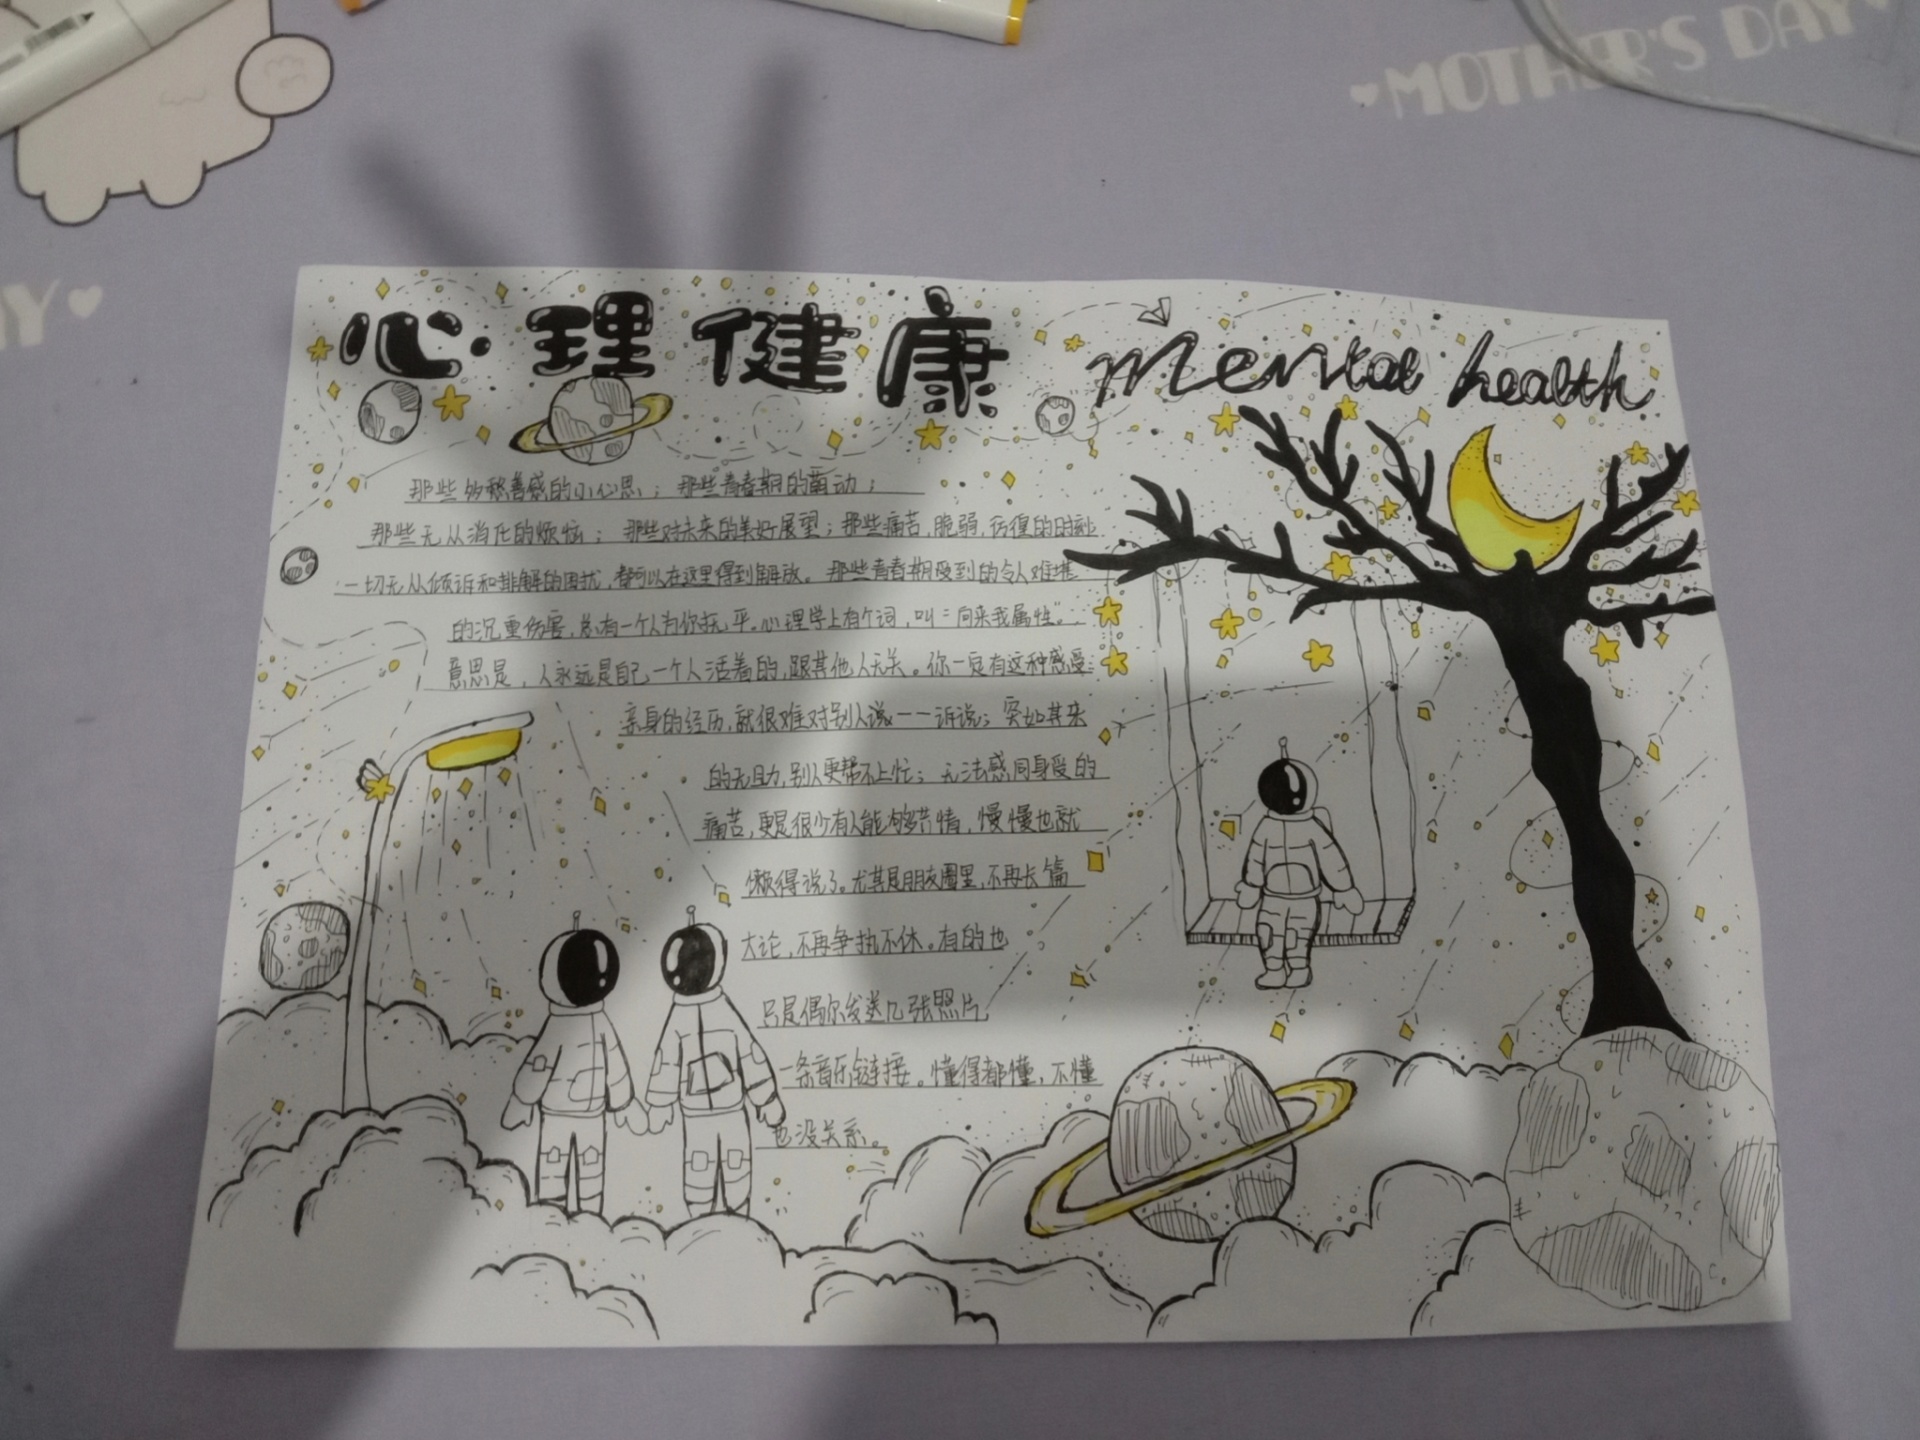 MOTHER'S DAY
AY
心理健康 Mental health
那些多愁善感的小心思；那些青春期的萌动；
那些无从消化的烦恼；那些对未来的美好展望；那些痛苦，脆弱，彷徨的时刻
一切无从倾诉和排解的困扰，都可以在这里得到解放。那些青春期受到的令人难堪
的沉重伤害，总有一个人为你抚平。心理学上有个词，叫“向来我属性”。
意思是，人永远是自己一个人活着的，跟其他人无关。你一定有这种感受：
亲身的经历，就很难对别人说一一诉说；突如其来
的无助，别人更帮不上忙；无法感同身受的
痛苦，更是很少有人能够共情，慢慢也就
懒得说了。尤其是朋友圈里，不再长篇
大论，不再争执不休。有的也
只是偶尔发送几张照片，
一条音乐链接。懂得都懂，不懂
也没关系。